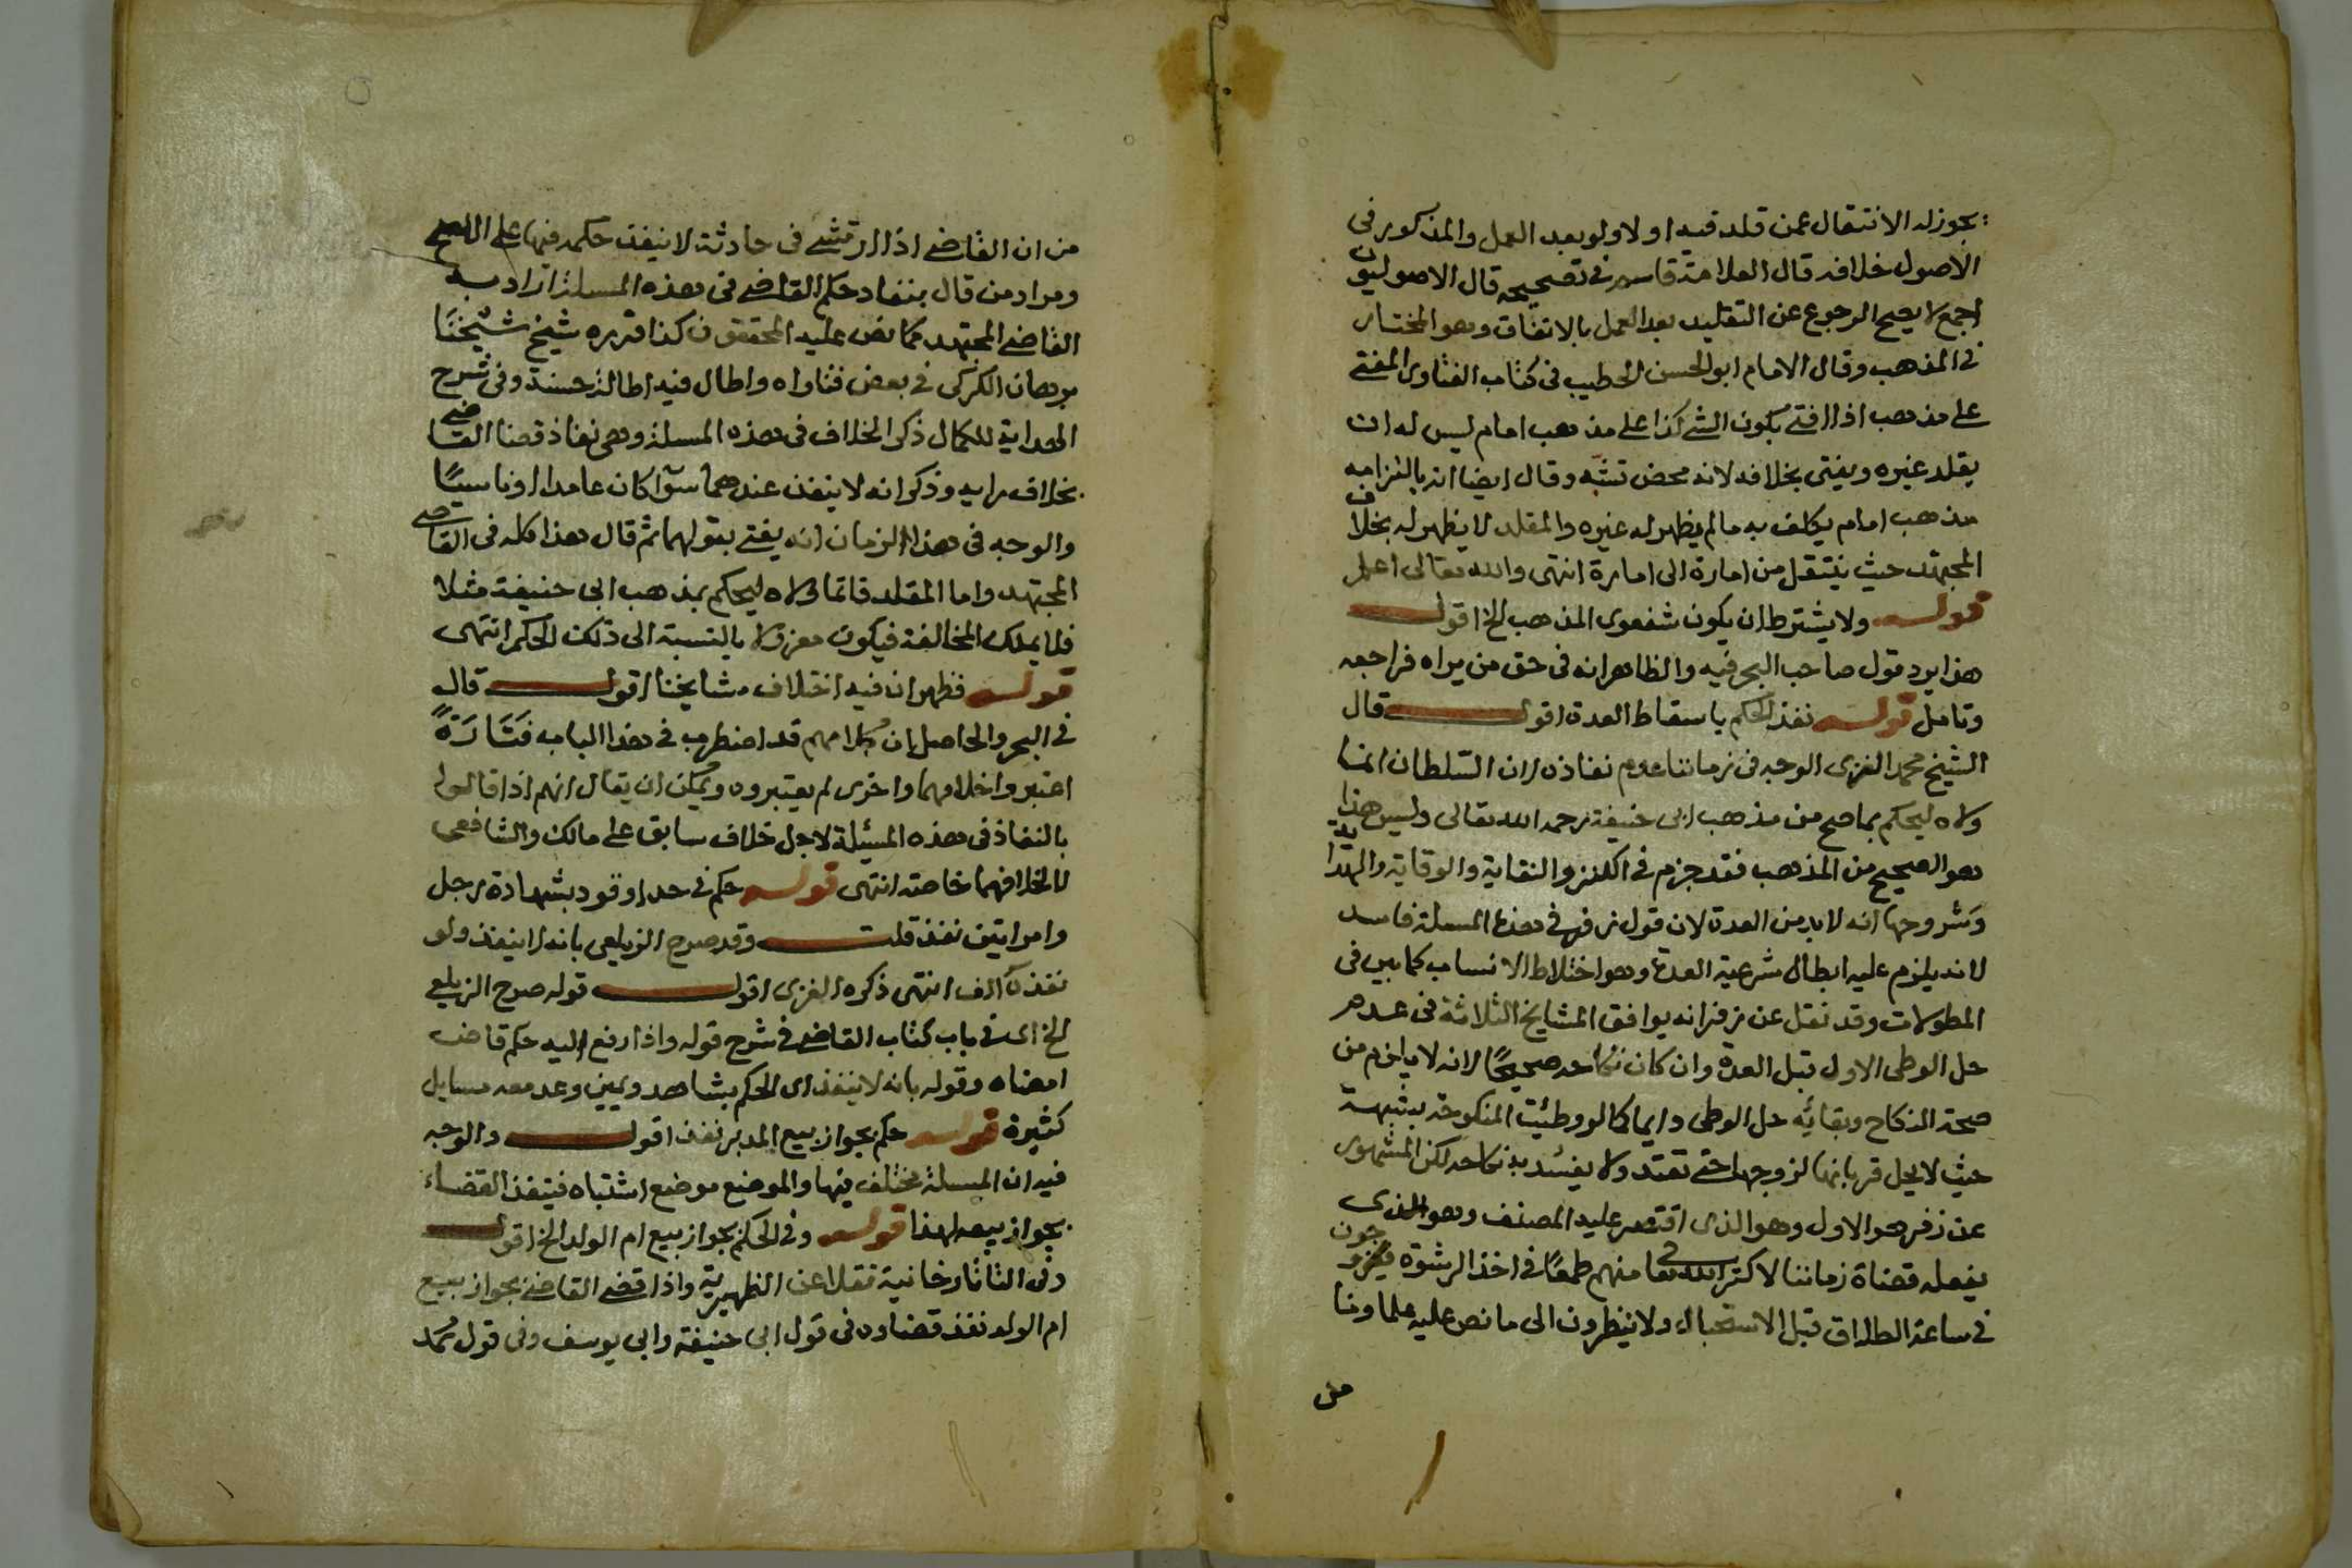 يجوز له الانتقال عمن قلد فيه او لا ولو بعد العمل والمذكور فى
الاصول خلافه قال العلامة قاسم في تصحيحه قال الاصوليون
اجمع لا يصح الرجوع عن التقليد بعد العمل بالاتفاق وهو المختار
في المذهب وقال الامام ابو الحسن الخطيب فى كتاب الفتاوى المفتي
على مذهب اذا افتى بكون الشي كذا على مذهب امام ليس له ان
يقلد غيره ويفتى بخلافه لانه محض تشه وقال ايضا انه بالتزامه
مذهب امام يكلف به مالم يظهر له غيره والمقلد لا يظهر له بخلاف
المجتهد حيث ينتقل من امارة الى امارة انتهى والله تعالى اعلم
قوله ولا يشترط ان يكون شفعوى المذهب الخ اقول
هذا يرد قول صاحب البحر فيه والظاهر انه فى حق من يراه فراجعه
وتامل قوله نفذ الحكم باسقاط العدة اقول قال
الشيخ محمد الغزى الوجه فى زماننا عدم نفاذه لان السلطان انما
ولاه ليحكم بما صح من مذهب ابى حنيفة رحمه الله تعالى وليس هذا
هو الصحيح من المذهب فقد جزم في الكنز والنقاية والوقاية والهداية
وشروحها انه لا بد من العدة لان قول زفر في هذه المسلة فاسد
لانه يلزم عليه ابطال شرعية العدة وهو اختلاط الانساب كما بين فى
المطولات وقد نقل عن زفر انه يوافق المشايخ الثلاثة فى عدم
حل الوطى الاول قبل العدة وان كان نكاحه صحيحًا لانه لا يلزم من
صحة النكاح وبقائه حل الوطى دايما كالو وطئت المنكوحة بشبهة
حيث لا يحل قربانها لزوجها حتى تعتد ولا يفسد به نكاحه لكن المشهور
عن زفر هو الاول وهو الذى اقتصر عليه المصنف وهو الذى
يفعله قضاة زماننا لا كثر الله تعا منهم طمعًا في اخذ الرشوة فيزوجون
في ساعة الطلاق قبل الاستحبال ولا ينظرون الى ما نص عليه علماونا
من
من ان القاضى اذا ارتشى فى حادثة لا ينفذ حكمه فيها على الصحيح
ومراد من قال بنفاد حكم القاضى فى هذه المسلة اراد به
القاضى المجتهد كما نص عليه المحققون كذا قرره شيخ شيخنا
برهان الكركى في بعض فتاواه واطال فيه اطالة حسنة وفى شرح
الهداية للكمال ذكر الخلاف فى هذه المسلة وهى نفاذ قضا القاضى
بخلاف رايه وذكر انه لا ينفذ عندهما سوآ كان عامدا او ناسيًا
والوجه فى هذا الزمان انه يفتى بقولهما ثم قال هذا كله فى القاضى
المجتهد واما المقلد فانما ولاه ليحكم بمذهب ابى حنيفة مثلا
فلا يملك المخالفة فيكون معزولا بالنسبة الى ذلك الحكم انتهى
قوله فظهر ان فيه اختلاف مشايخنا اقول قال
في البحر والحاصل ان كلامهم قد اضطرب في هذا الباب فتارة
اعتبروا خلافهما واخرى لم يعتبروه ويمكن ان يقال انهم اذا قالوا
بالنفاذ فى هذه المسئلة لاجل خلاف سابق على مالك والشافعى
لا لخلافهما خاصة انتهى قوله حكم في حد او قود بشهادة رجل
وامراتين نفذ قلت وقد صرح الزيلعى بانه لا ينفذ ولو
نفذه الف انتهى ذكره الغزى اقول قوله صرح الزيلعى
الخ اى في باب كتاب القاضى في شرح قوله واذا رفع اليه حكم قاض
امضاه وقوله بانه لا ينفذ اى الحكم بشاهد ويمين وعد معه مسايل
كثيرة قوله حكم بجواز بيع المدبر نفذ اقول والوجه
فيه ان المسلة مختلف فيها والموضع موضع اشتباه فينفذ القضاء
بجواز بيعه لهذا قوله وفي الحكم بجواز بيع ام الولد الخ اقول
وفى التاتارخانية نقلا عن الظهيرية واذا قضى القاضى بجواز بيع
ام الولد نفذ قضاوه فى قول ابى حنيفة وابى يوسف وفى قول محمد